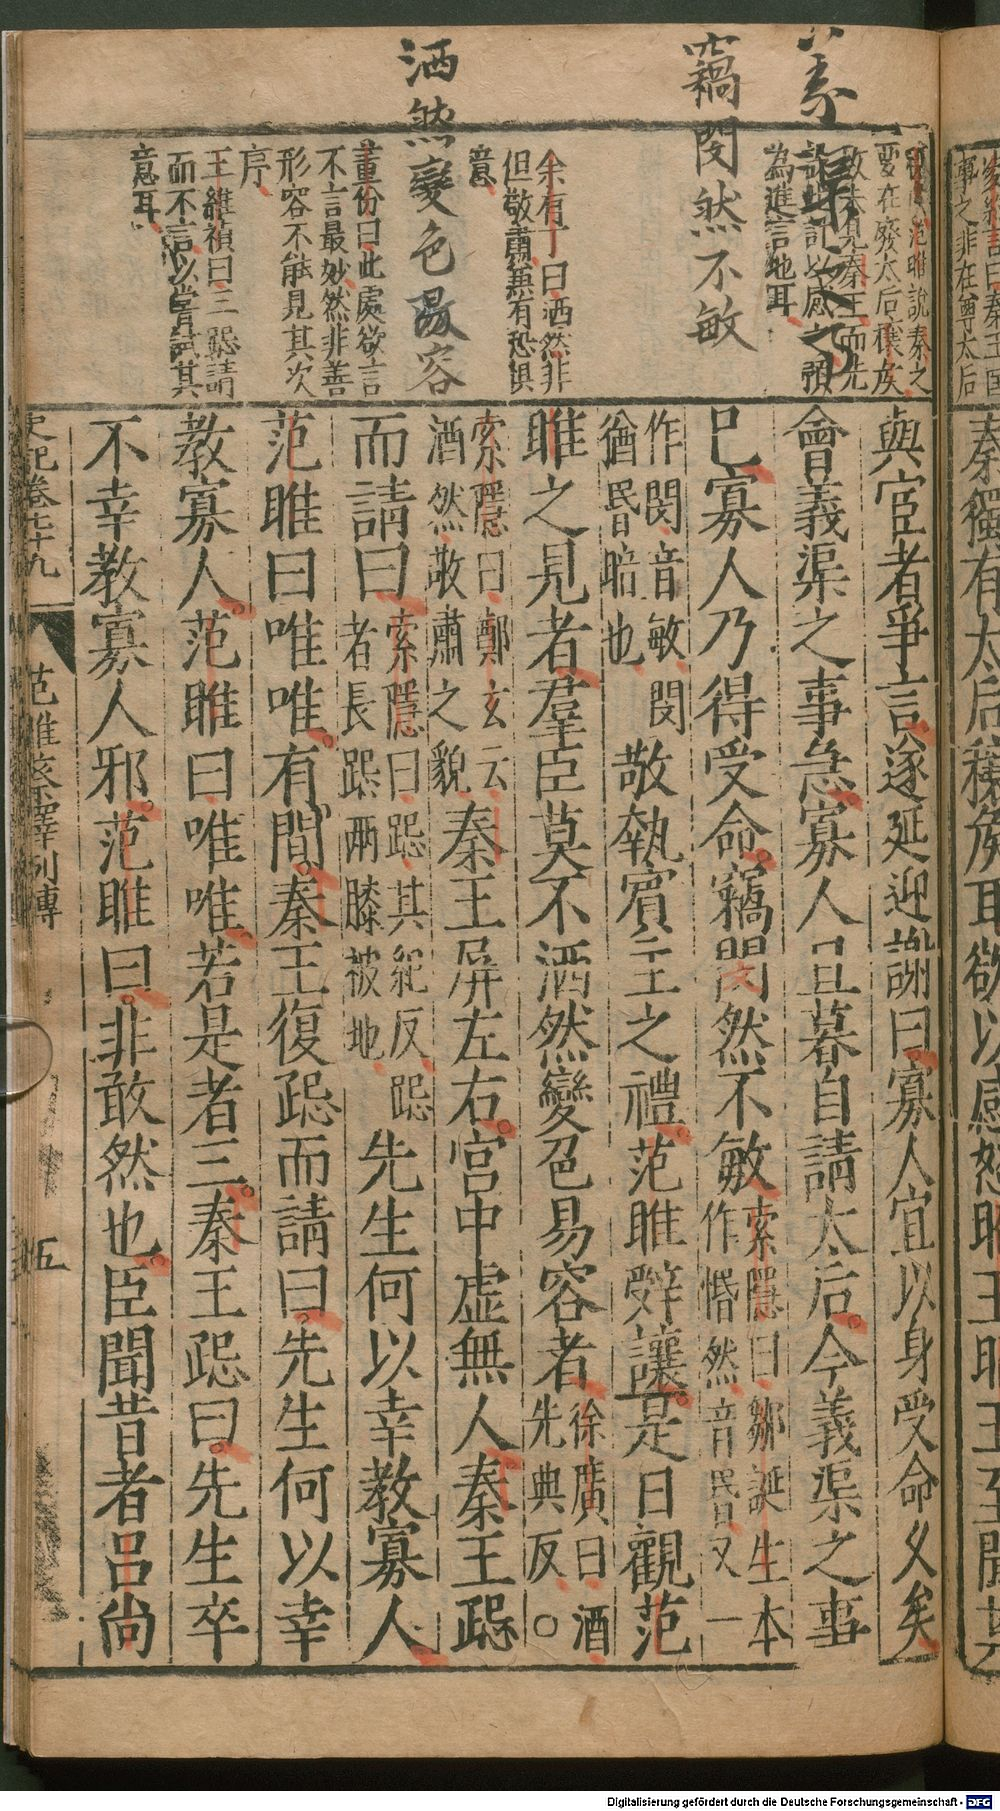 義渠之事
竊閔然不敏
洒然變色易容
余有丁曰洒然非
但敬肅兼有恐懼
意
董份曰此處欲言
不言最妙然非善
形容不能見其次
序
王維禎曰三跽請
而不言以嘗試其
意耳
為進言地耳
秦獨有太后穰侯耳欲以感怒昭王昭王至聞其
與宦者爭言遂延迎謝曰寡人宜以身受命久矣
會義渠之事急寡人旦暮自請太后今義渠之事
已寡人乃得受命竊閔然不敏索隱曰鄒誕生本作惛然音昏又一
作閔音敏閔猶昏暗也敬執賓主之禮范睢辭讓是日觀范
睢之見者羣臣莫不洒然變色易容者徐廣曰洒先典反○
索隱曰鄭玄云洒然敬肅之貌秦王屏左右宮中虛無人秦王跽
而請曰索隱曰跽其紀反跽者長跽兩膝被地先生何以幸教寡人
范睢曰唯唯有間秦王復跽而請曰先生何以幸
教寡人范睢曰唯唯若是者三秦王跽曰先生卒
不幸教寡人邪范睢曰非敢然也臣聞昔者呂尚
史記卷七十九
范睢蔡澤列傳
五
Digitalisierung gefördert durch die Deutsche Forschungsgemeinschaft - DFG